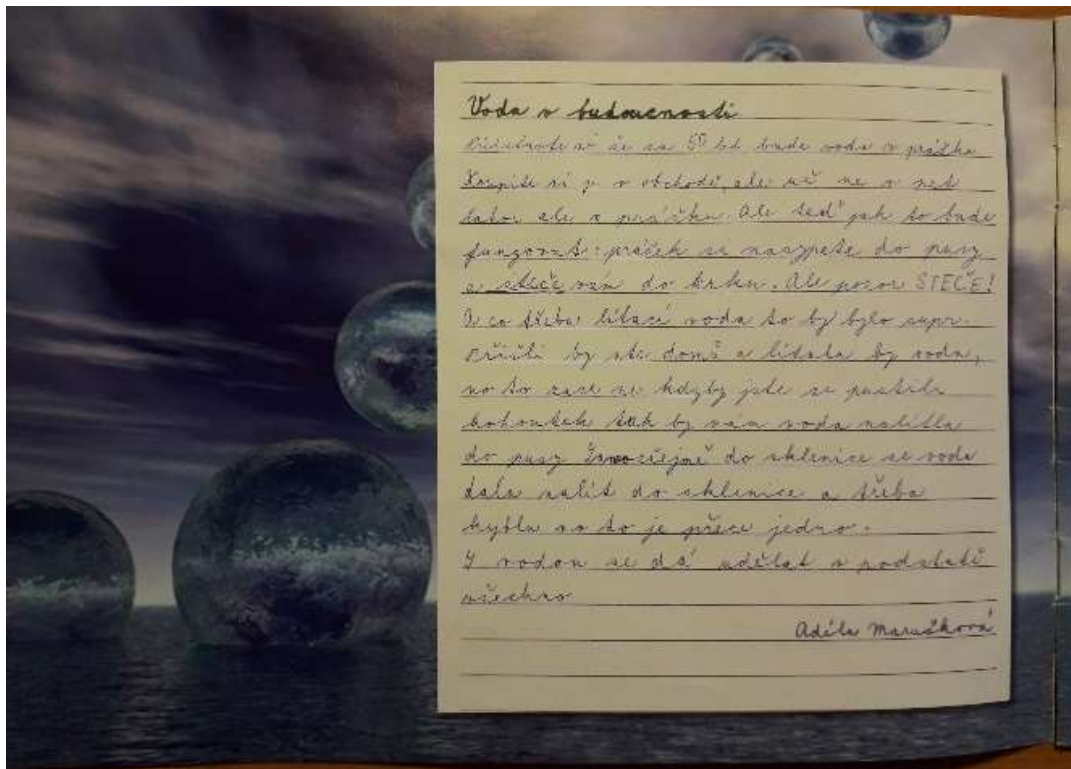 Voda v budoucnosti
si že za 55 let bude voda v prášku
si ji v obchodě, ale už ne v pet
ale v prášku. Ale teď jak to bude
fungovat: prášek si nasypete do pusy
a steče vám do krku. Ale pozor STEČE!
A co třeba lítací voda to by bylo supr.
Přišli by ste domů a lítala by voda,
no to zase ne kdyby jste si pustili
kohoutek tak by vám voda
do pusy Samozřejmě do sklenice se voda
dala nalít do sklenice a třeba
kyblu no to je přece jedno.
S vodou se dá udělat v podstatě
všechno
Adéla Marušková